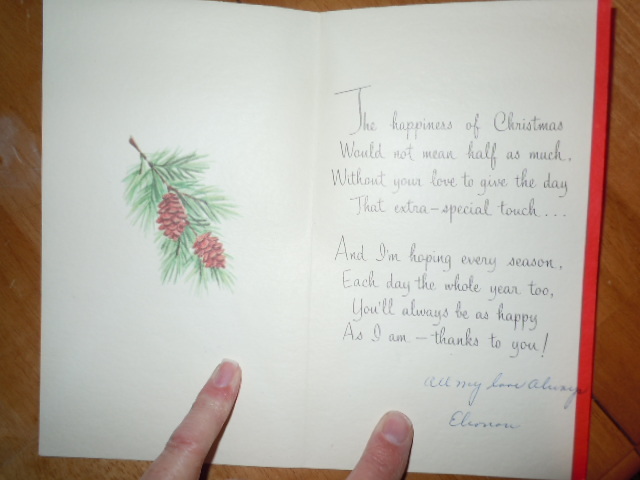 The happiness of Christmas
Would not mean half as much,
Without your love to give the day
That extra-special touch...
And I'm hoping every season,
Each day the whole year too,
You'll always be as happy
As I am — thanks to you!
All my love Always